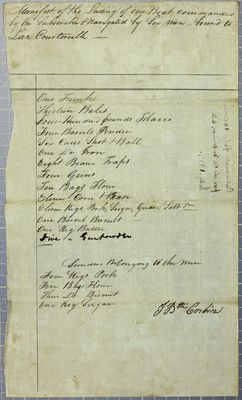 Manifest of the Lading of one Boat commanded
by the Subscriber & Navigated by Six men — bound to
Lac Courtoreille —
One Trunk
Thirteen Bales
Four Hundred pounds Tobacco
Four Barrels Powder
Six Cases Shot & Ball
One Do Iron
Eight Beaver Traps
Four Guns
Ten Bags Flour
Corn & Pease
Eleven Kegs Pork, Sugar, Salt
One Barrel Biscuit
One Keg Butter
Five Do Gunpowder
Sundries Belonging to the men
Four Kegs Pork
Ten Bags Flour
Three Do Biscuit
One Keg Sugar
J Bte Corbin